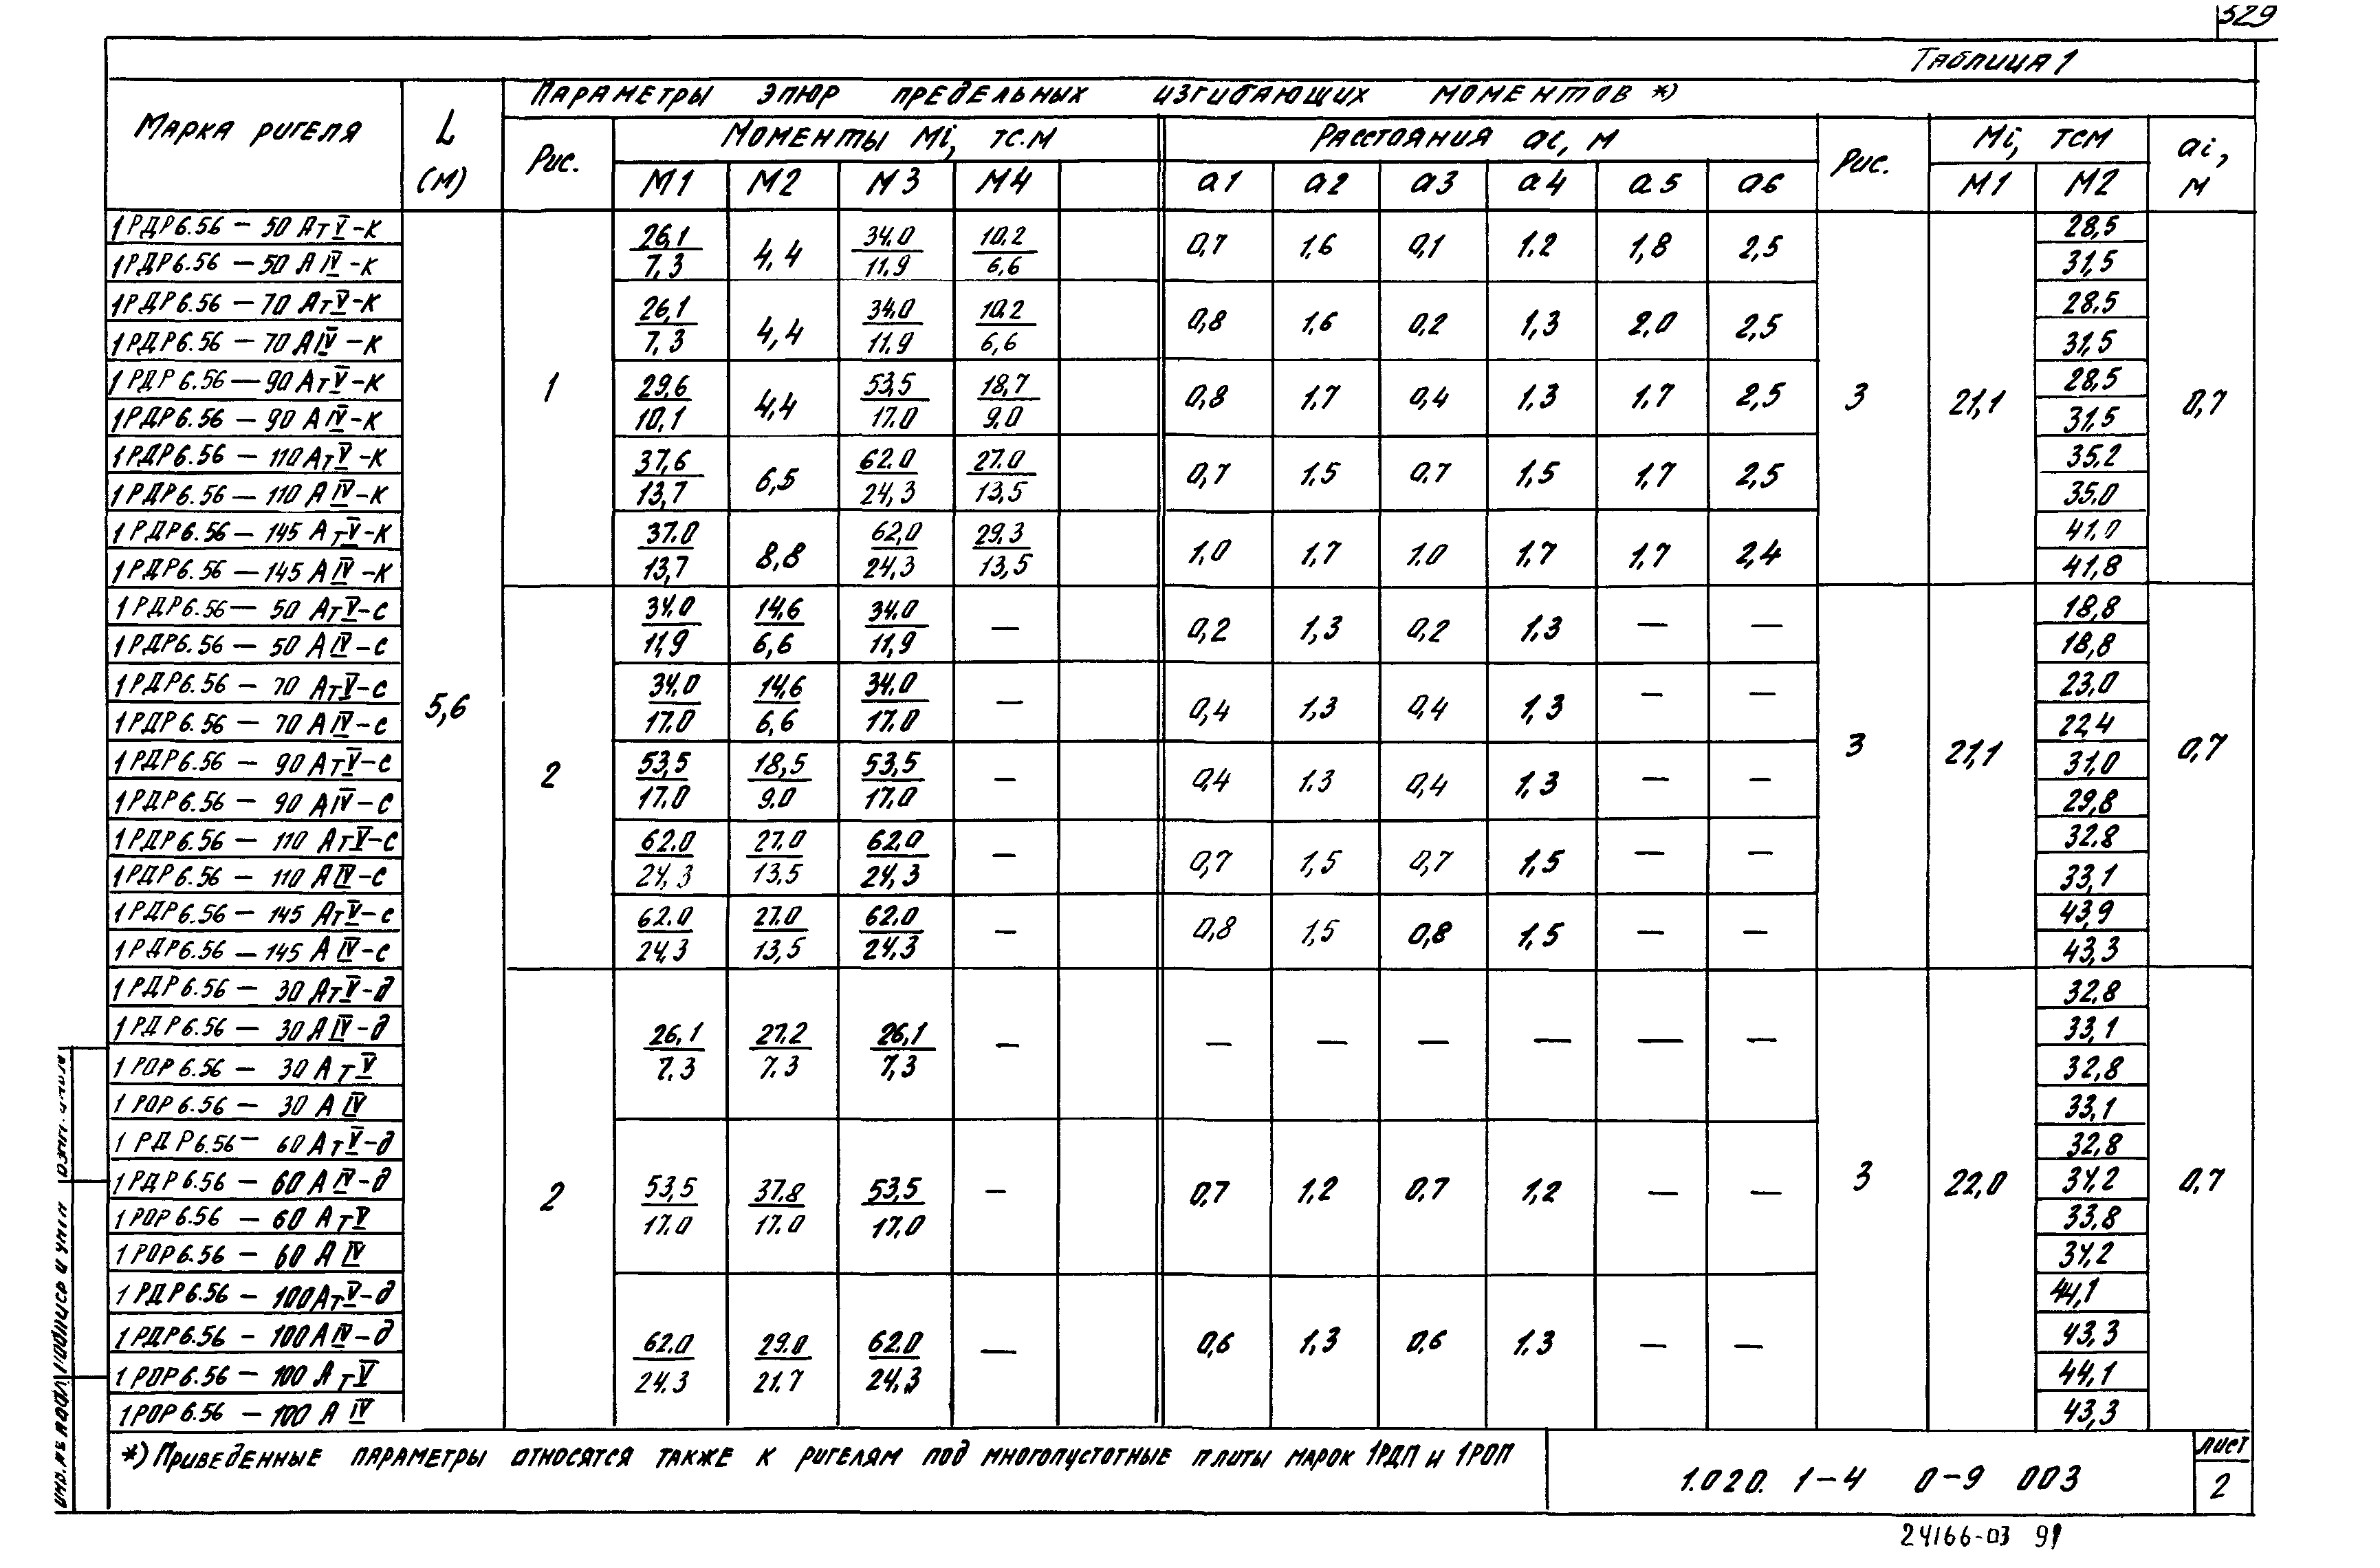 329
Таблица 1
Марка ригеля L (м) Параметры эпюр предельных изгибающих моментов *)
Рис. Моменты Mi, тс.м Расстояния ai, м Рис. Mi, тсм ai, м
M1 M2 M3 M4 a1 a2 a3 a4 a5 a6 M1 M2
1РДР6.56 — 50 АтV-К 5,6 1 26,1/7,3 4,4 34.0/11,9 10,2/6,6 0,7 1,6 0,1 1.2 1,8 2,5 3 21,1 28,5 0,7
1РДР6.56 — 50 АIV-К 31,5
1РДР6.56 — 70 АтV-К 26,1/7,3 4,4 34,0/11,9 10,2/6,6 0,8 1.6 0,2 1,3 2.0 2,5 28.5
1РДР6.56 — 70 АIV-К 31,5
1РДР6.56 — 90 АтV-К 29,6/10,1 4,4 53,5/17.0 18,7/9.0 0,8 1.7 0,4 1.3 1.7 2,5 28,5
1РДР6.56 — 90 АIV-К 31,5
1РДР6.56 — 110 АтV-К 37,6/13,7 6,5 62.0/24,3 27.0/13,5 0,7 1.5 0.7 1,5 1,7 2,5 35,2
1РДР6.56 — 110 АIV-К 35.0
1РДР6.56 — 145 АтV-К 37.0/13,7 8,8 62,0/24,3 29.3/13,5 1.0 1,7 1.0 1,7 1,7 2,4 41.0
1РДР6.56 — 145 АIV-К 41,8
1РДР6.56 — 50 АтV-с 2 34.0/11,9 14,6/6,6 34.0/11,9 — 0,2 1,3 0,2 1.3 — — 3 21,1 18,8 0,7
1РДР6.56 — 50 АIV-с 18,8
1РДР6.56 — 70 АтV-с 34.0/17.0 14,6/6,6 34.0/17.0 — 0,4 1,3 0,4 1,3 — — 23.0
1РДР6.56 — 70 АIV-с 22,4
1РДР6.56 — 90 АтV-с 53,5/17.0 18,5/9.0 53,5/17.0 — 0,4 1.3 0,4 1,3 — — 31.0
1РДР6.56 — 90 АIV-с 29,8
1РДР6.56 — 110 АтV-с 62.0/24,3 27.0/13,5 62,0/24,3 — 0,7 1,5 0,7 1,5 — — 32.8
1РДР6.56 — 110 АIV-с 33,1
1РДР6.56 — 145 АтV-с 62.0/24,3 27.0/13,5 62.0/24,3 — 0,8 1,5 0,8 1,5 — — 43,9
1РДР6.56 — 145 АIV-с 43,3
1РДР6.56 — 30 АтV-д 2 26,1/7.3 27.2/7.3 26,1/7,3 — — — — — — — 3 22,0 32,8 0,7
1РДР6.56 — 30 АIV-д 33,1
1РОР6.56 — 30 АтV 32,8
1РОР6.56 — 30 АIV 33,1
1РДР6.56 — 60 АтV-д 53,5/17.0 37.8/17.0 53,5/17,0 — 0,7 1,2 0,7 1,2 — — 32,8
1РДР6.56 — 60 АIV-д 34,2
1РОР6.56 — 60 АтV 33,8
1РОР6.56 — 60 АIV 34,2
1РДР6.56 — 100 АтV-д 62.0/24.3 29.0/21.7 62.0/24,3 — 0,6 1,3 0,6 1.3 — — 44,1
1РДР6.56 — 100 АIV-д 43,3
1РОР6.56 — 100 АтV 44,1
1РОР6.56 — 100 АIV 43,3
*) Приведенные параметры относятся также к ригелям под многопустотные плиты марок 1РДП и 1РОП
1.020. 1-4 0-9 003
лист
2
24166-03 91
Подпись и